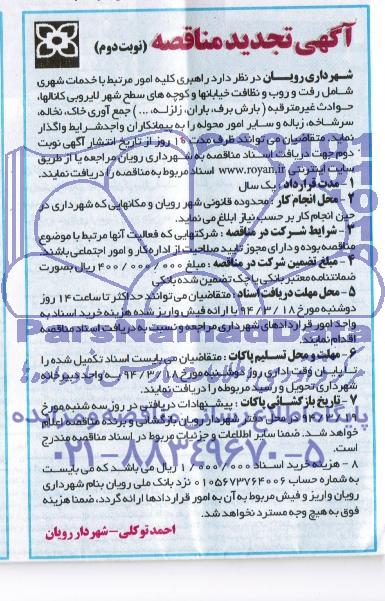 آگهی تجدید مناقصه (نوبت دوم)
شهرداری رویان در نظر دارد راهبری کلیه امور مرتبط با خدمات شهری
شامل رفت و روب و نظافت خیابانها و کوچه های سطح شهر لایروبی کانالها،
حوادث غیرمترقبه (بارش برف، باران، زلزله، ...) جمع آوری خاک، نخاله،
سرشاخه، زباله و سایر امور محوله را به پیمانکاران واجد شرایط واگذار
نماید. متقاضیان می توانند ظرف مدت روز از تاریخ انتشار آگهی نوبت
دوم جهت دریافت اسناد مناقصه به شهرداری رویان مراجعه یا از طریق
سایت اینترنتی www.royan.ir اسناد مربوط به مناقصه را دریافت نمایند.
۱- مدت قرارداد: یک سال
۲- محل انجام کار: محدوده قانونی شهر رویان و مکانهایی که شهرداری در
حین انجام کار بر حسب نیاز ابلاغ می نماید.
۳- شرایط شرکت در مناقصه: شرکتهایی که فعالیت آنها مرتبط با موضوع
مناقصه بوده و دارای مجوز تایید صلاحیت از اداره کار و امور اجتماعی باشند
۴- مبلغ تضمین شرکت در مناقصه: مبلغ ۴۰۰/۰۰۰/۰۰۰ ریال بصورت
ضمانتنامه معتبر بانکی یا چک تضمین شده بانکی
۵- محل مهلت دریافت اسناد: متقاضیان می توانند حداکثر تا ساعت ۱۴ روز
دوشنبه مورخ ۹۴/۳/۱۸ با ارائه فیش واریز شده هزینه خرید اسناد به
واحد امور قراردادهای شهرداری مراجعه و نسبت به دریافت اسناد مناقصه
اقدام نمایند.
۶- مهلت و محل تسلیم پاکات: متقاضیان می بایست اسناد تکمیل شده را
تا پایان وقت اداری روز دوشنبه مورخ ۹۴/۳/۱۸ به واحد دبیرخانه
شهرداری تحویل و رسید مربوطه را دریافت نمایند.
۷- تاریخ بازگشائی پاکات: پیشنهادات دریافتی در روز سه شنبه مورخ
۹۴/۳/۱۹ در محل دفتر شهردار رویان بازگشائی و برنده مناقصه اعلام
خواهد شد. ضمنا سایر اطلاعات و جزئیات مربوط در اسناد مناقصه مندرج
است.
۸- هزینه خرید اسناد ۱/۰۰۰/۰۰۰ ریال می باشد که می بایست
به شماره حساب ۰۱۰۵۶۷۳۷۶۴۰۰۶ نزد بانک ملی رویان بنام شهرداری
رویان واریز و فیش مربوط به آن به امور قراردادها ارائه گردد، ضمنا هزینه
فوق به هیچ وجه مسترد نخواهد شد.
احمد توکلی - شهردار رویان
ParsNamadData
پایگاه اطلاع رسانی مناقصه و مزایده
۰۲۱-۸۸۳۴۹۶۷۰-۵